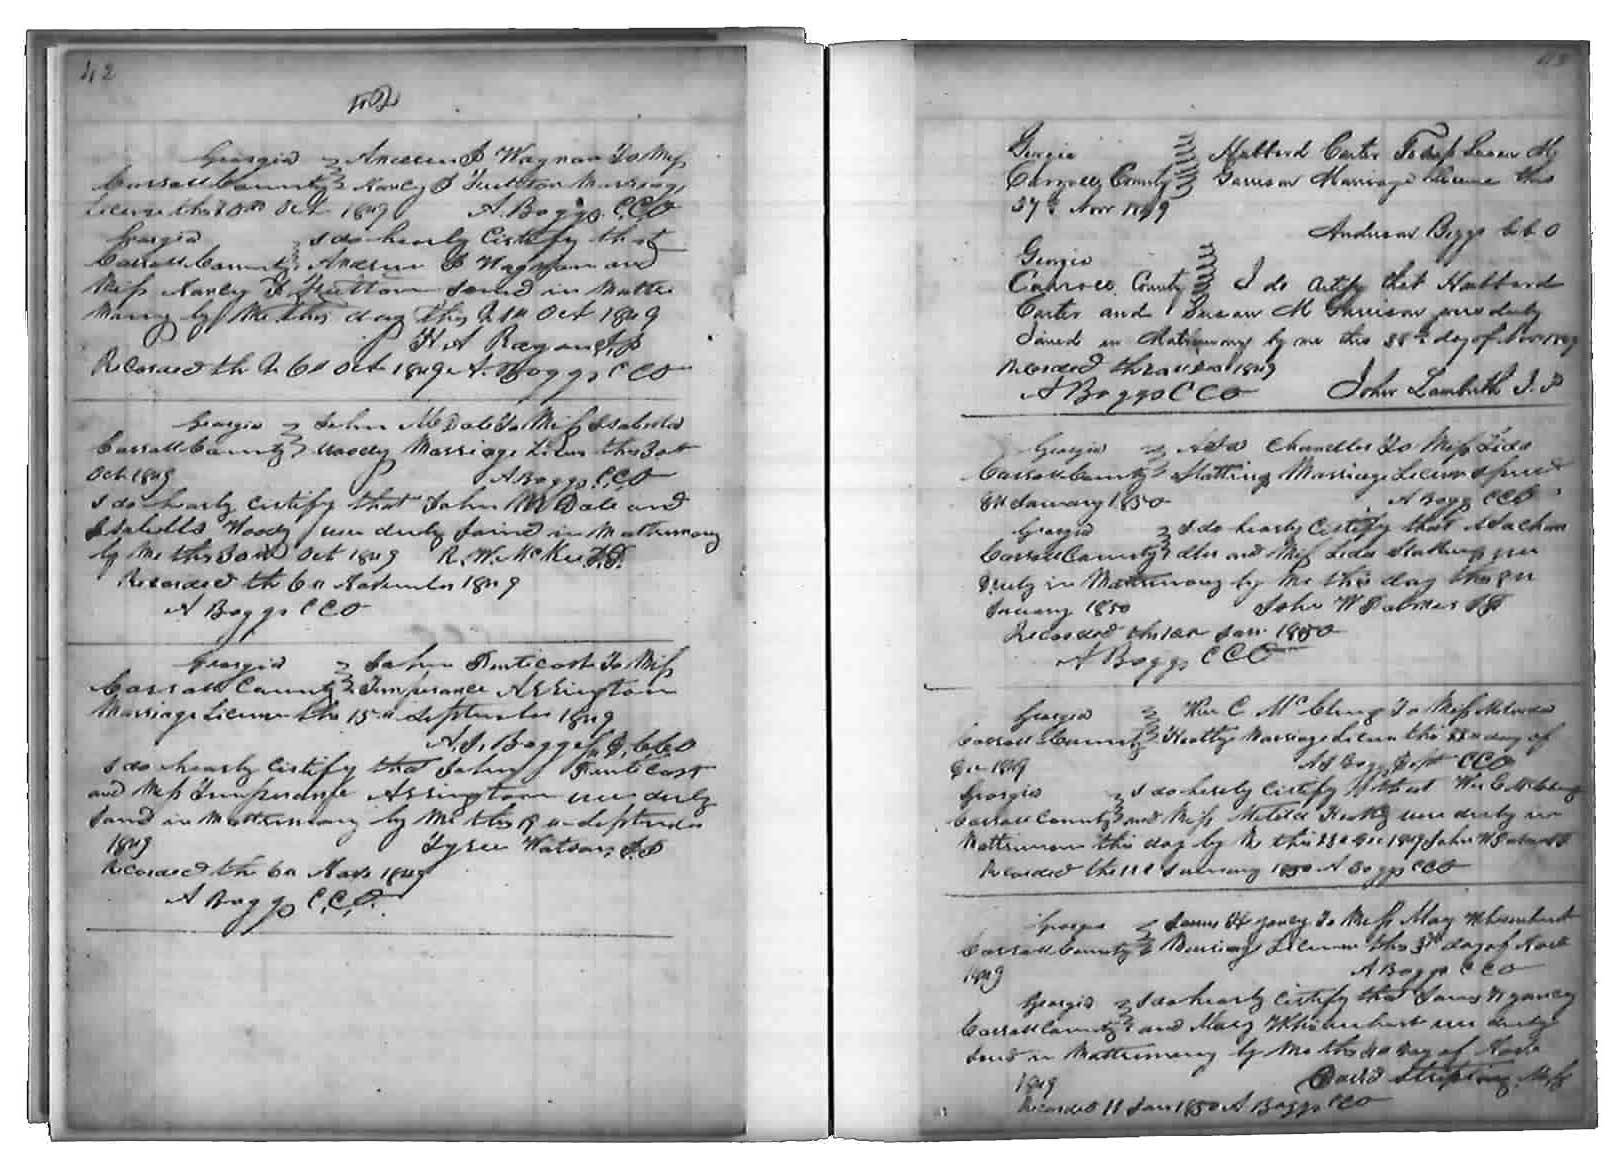 42
42
Georgia Andrew J Wagnon To Miss
Carroll County Nancy J Hutton Marriage
License this 20th Oct 1849 A. Boggs. C.C.O
Georgia I do hearby Certify that
Carroll County Andrew J Wagnon and
Miss Nancy J Hutton Joind in Matri
Mony by Me this day this 21st Oct 1849
H A Ragan J,P
Recorded th 26th Oct 1849 A. Boggs C C O
Georgia John M Dale To Miss Isabella
Carroll County Woody Marriage License this
Oct 1849 A Boggs C.C.O
I do hearby Certify that John M Dale and
Isabella Woody were duly Joind in Matrimony
by Me this Oct 1849 R. W. McKee J.P.
Recorded th 6th November 1849
A Boggs C C O
Georgia John Penticost To Miss
Carroll County Temperance Arrington
Marriage License this 15th September 1849
A. J. Boggs D, C.C.O
I do hearby Certify that John Penticost
and Miss Temperance Arrington were duly
Joind in Matrimony by Me this September
1849 Tyree Watson J.P
Recorded th 6th Novr 1849
A Boggs C.C.O.
43
Georgia Hubbard Carter To Miss Susan M
Carroll County Garrison Marriage License this
27th Novr 1849
Anderson Boggs C C O
Georgia
Carroll County I do Certify that Hubbard
Carter and Susan M Garrison were duly
Joined in Matrimony by me this 28th day of Novr 1849
Recorded 1849
A Boggs C C O John Lambuth J. P
Georgia Chandler To Miss Lida
Carroll County Stallings Marriage License
8th January 1850 A Boggs C C O
Georgia I do hearby Certify that
Carroll County and Miss Lida Stallings were
Duly in Matrimony by Me this day this
January 1850 John W J.P
Recorded this Jan. 1850
A Boggs C C O
Georgia Wm C McClung To Miss
Carroll County Marriage License this day of
Dec 1849 A J Boggs Dept C C O
Georgia I do hereby Certify that Wm C McClung
Carroll County and Miss were duly in
Matrimony this day by Me this Dec 1849 John W J.P
Recorded the January 1850 A Boggs C C O
Georgia James H Yancy To Miss Mary
Carroll County Marriage License this 3rd day of Novr
1849 A Boggs C C O
Georgia I do hearby Certify that James H Yancy
Carroll County and Mary were duly
Joind in Matrimony by Me this day of Novr
1849 David Stripling
Recorded 11 Jan 1850 A Boggs C C O